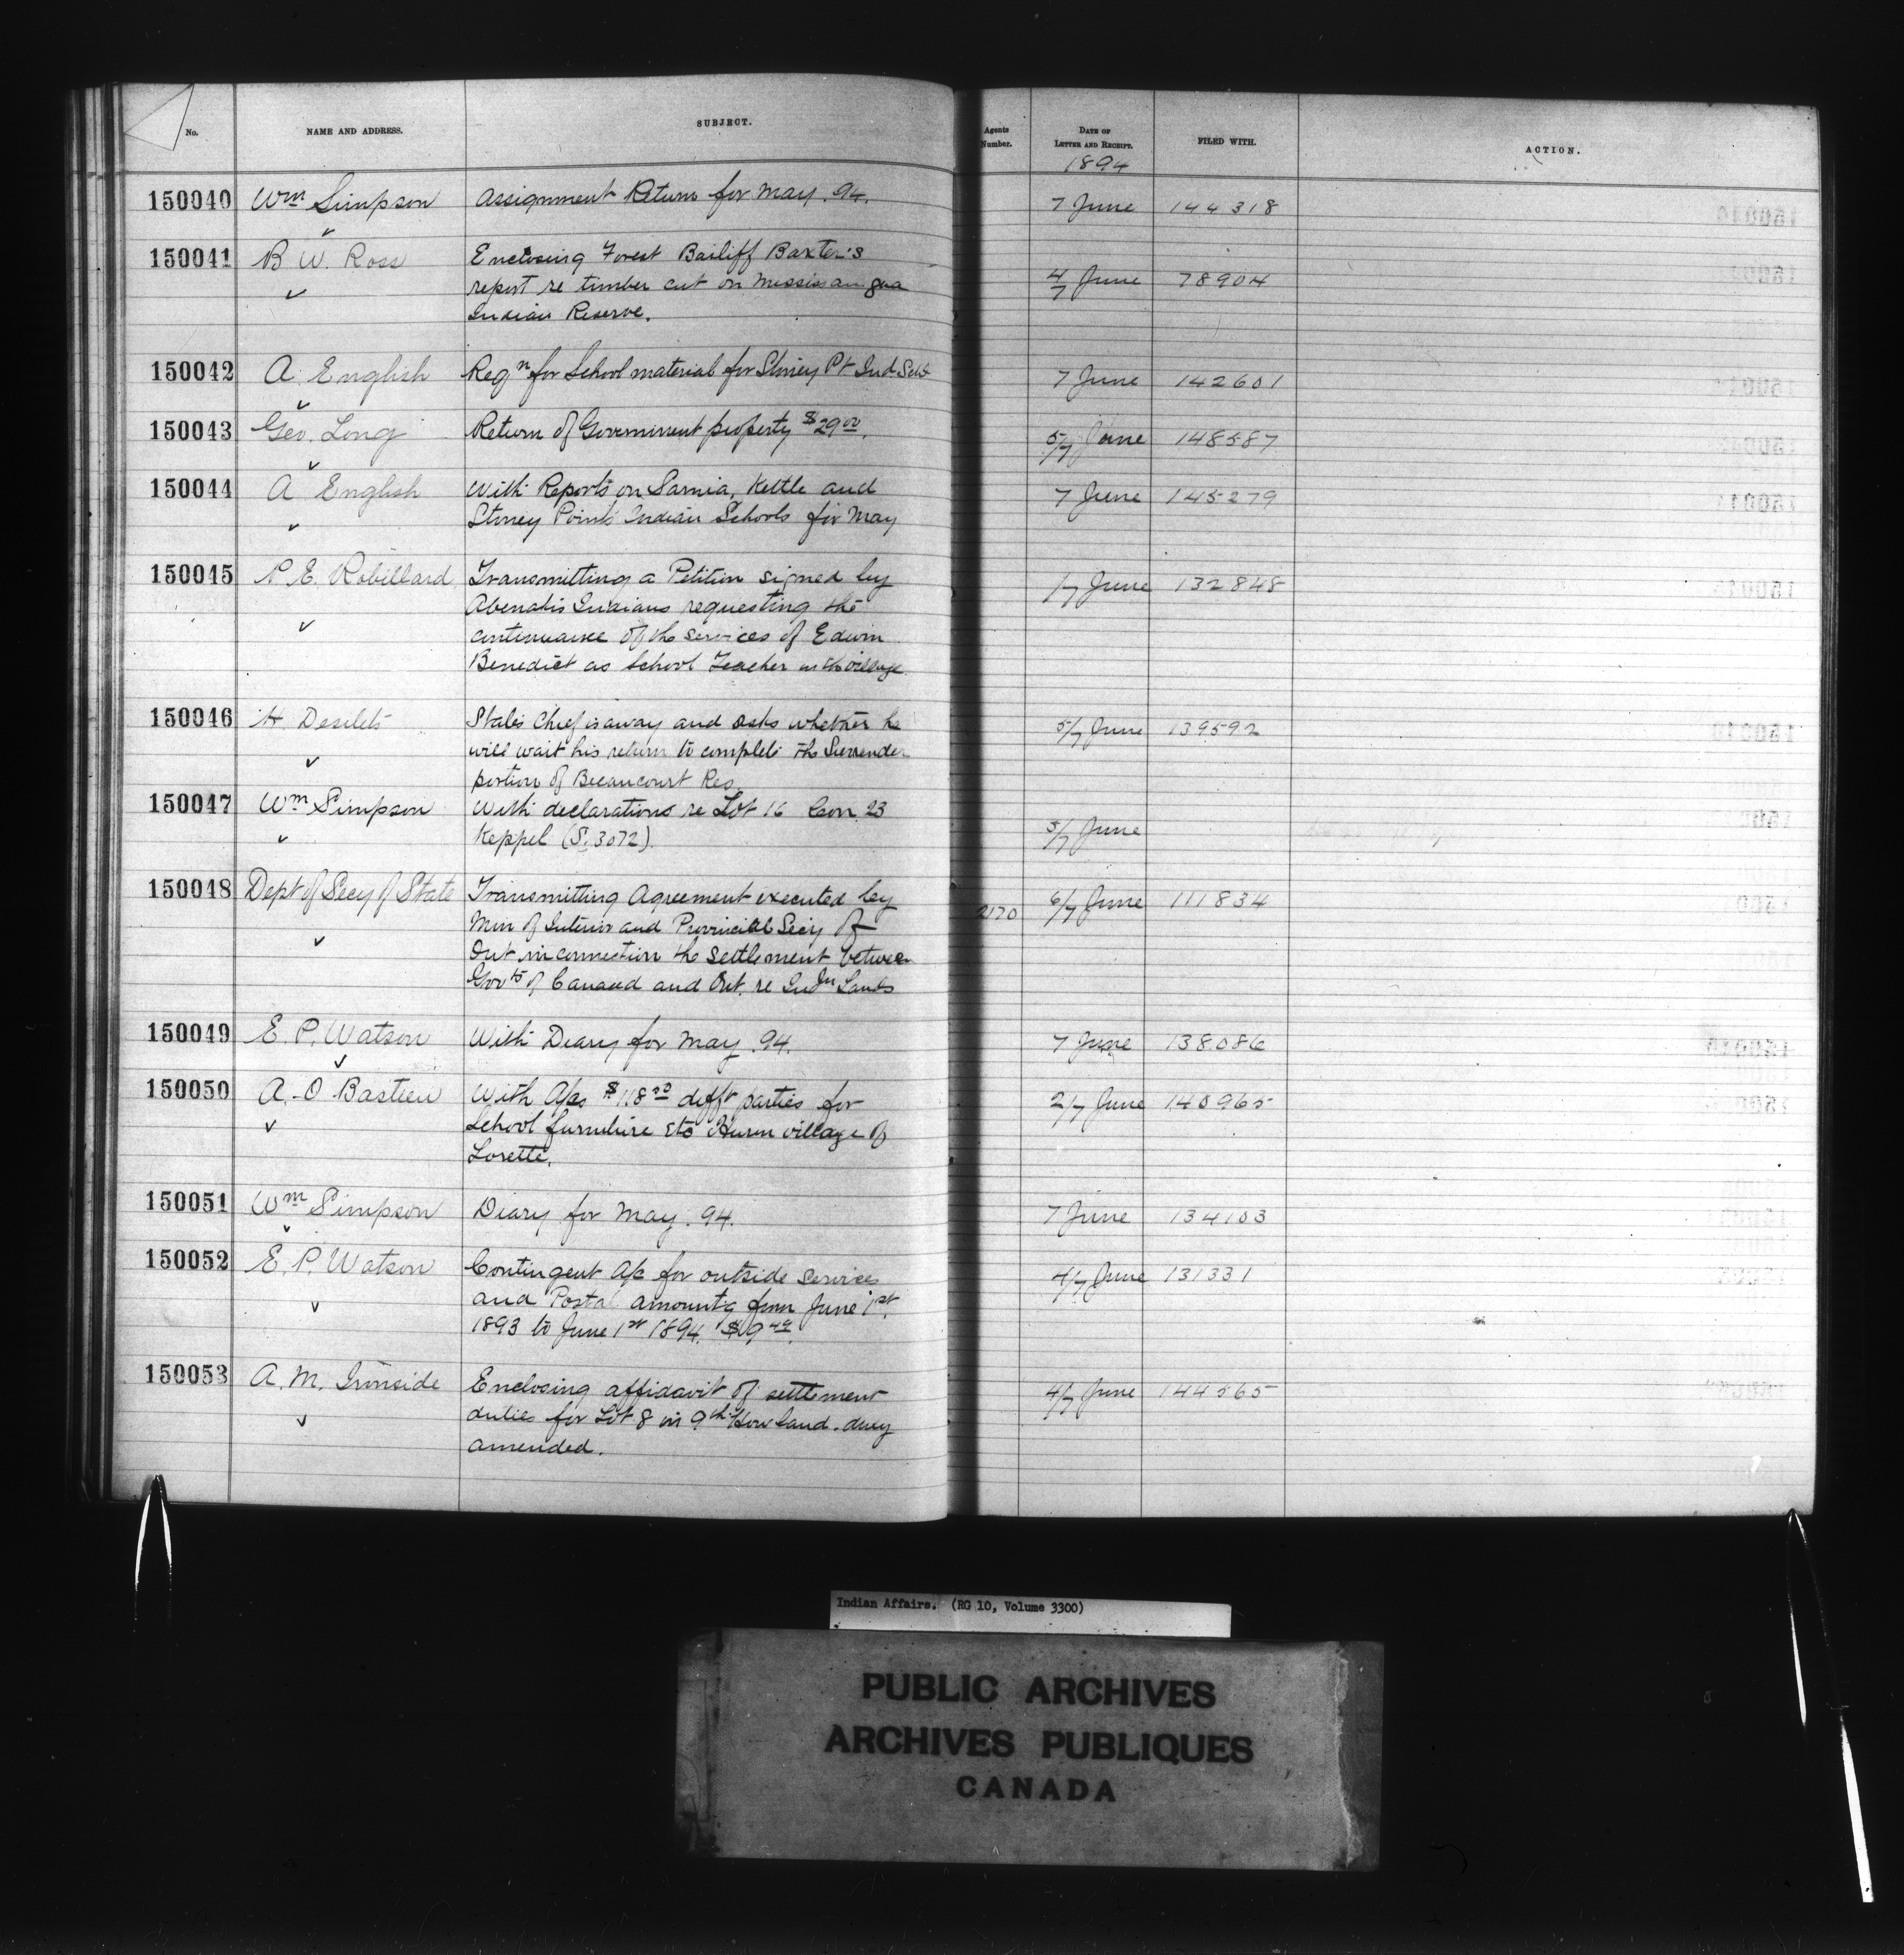 No. NAME AND ADDRESS. SUBJECT. Agents Number. DATE OF LETTER AND RECEIPT. FILED WITH. ACTION.
1894
150040 Wm Simpson Assignment Return for May. 94. 7 June 144318
150041 B W. Ross Enclosing Forest Bailiff Baxter's 4/7 June 78904
report re timber cut on Mississaugua
Indian Reserve.
150042 A. English Reqn for School material for Stoney Pt Ind Schl 7 June 142601
150043 Geo. Long Return of Government property $29.00. 5/7 June 148587
150044 A English With Reports on Sarnia, Kettle and 7 June 145279
Stoney Point Indian Schools for May
150045 P. E. Robillard Transmitting a Petition signed by 1/7 June 132848
Abenakis Indians requesting the
continuance of the services of Edwin
Benedict as School Teacher in the village
150046 H. Desilets States Chief is away and asks whether he 5/7 June 139592
will wait his return to complete the Surrender
portion of Becancourt Res
150047 Wm Simpson With declarations re Lot 16 Con 23 5/7 June
Keppel (S. 3072).
150048 Dept of Secy of State Transmitting Agreement executed by 2170 6/7 June 111834
Min of Interior and Provincial Secy of
Ont in connection the settlement between
Govts of Canada and Ont. re Indn Lands
150049 E. P. Watson With Diary for May. 94. 7 June 138086
150050 A. O Bastien With A/cs $118 diff't parties for 2/7 June 140965
School furniture etc Huron village of
Lorette.
150051 Wm Simpson Diary for May. 94. 7 June 134103
150052 E. P. Watson Contingent A/c for outside services 4/7 June 131331
and Postal amount'g from June 1st.
1893 to June 1st 1894. $
150053 A. M. Ironside Enclosing affidavit of settlement 4/7 June 144565
duties for Lot 8 in 9th Howland. duly
amended.
Indian Affairs. (RG 10, Volume 3300)
PUBLIC ARCHIVES
ARCHIVES PUBLIQUES
CANADA